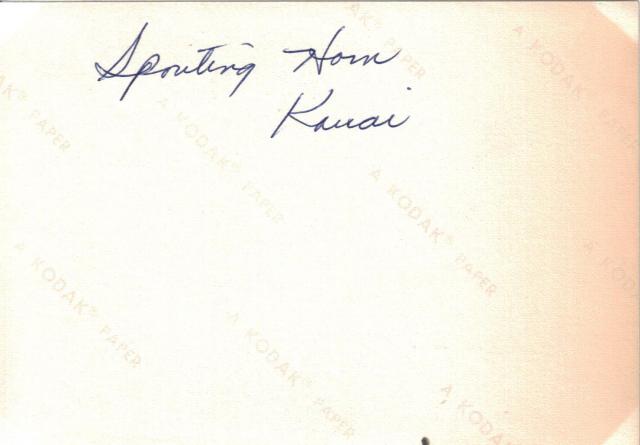 Spouting Horn
Kauai
A KODAK® PAPER
A KODAK® PAPER
A KODAK® PAPER
A KODAK® PAPER
A KODAK® PAPER
A KODAK® PAPER
A KODAK® PAPER
A KODAK
A KODAK
A KODAK